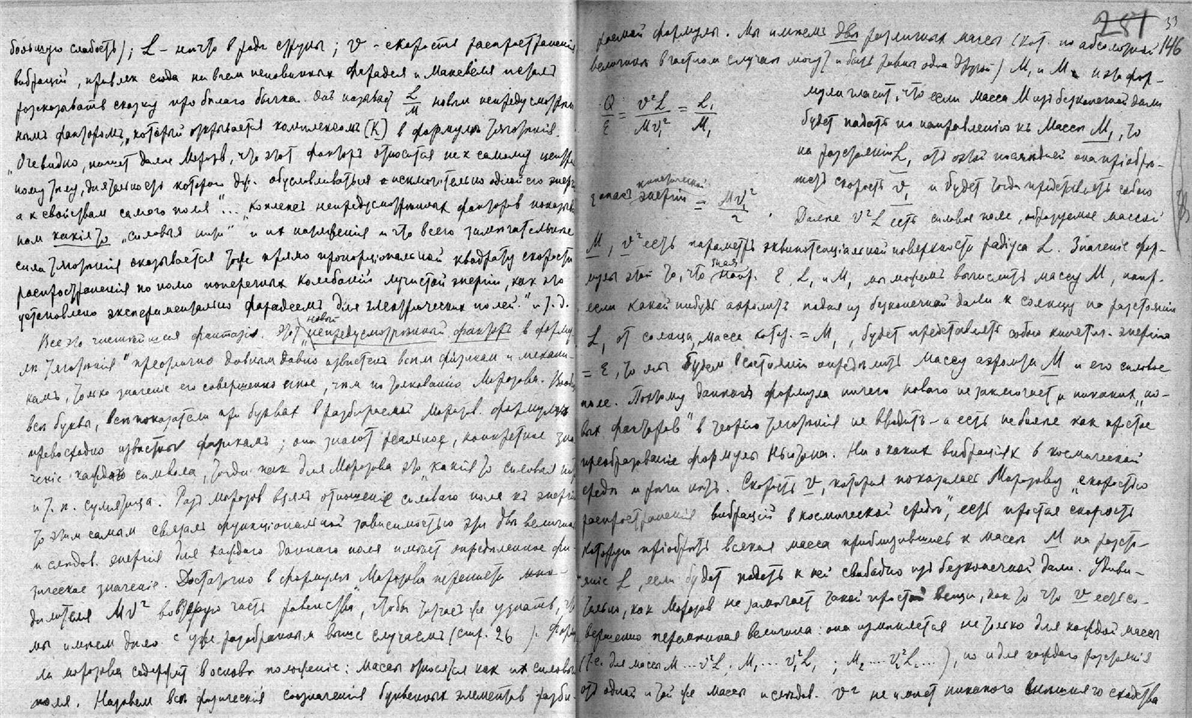 большую слабость); L – ничто в роде струны; v – скорость распространенія
вибрацій, привлек сюда ни в чем неповинных Фарадея и Максвелля и стал
рассказывать сказку про белаго бычка. Он называет L/M новым непредусмотрен-
ным фактором, "который открывается комплексом (K) в формуле тяготенія.
"Очевидно, пишет далее Морозов, что этот фактор относится не к самому центра
ному телу, деятельность котораго д.б. обусловливаться исключительно одной его энерг
а к свойствам самого поля"... "комплекс непредусмотренных факторов показыв
нам какія то "силовыя
сила тяготенія оказывается тоже прямо пропорціональной квадрату скорости
распространенія по полю поперечных колебаній лучистой энергіи, как это
установлено экспериментально Фарадеем для электрических полей." и т. д.
Все это чистейшая фантазія. Этот новый "непредусмотренный фактор" в форму
ле тяготенія" преотлично давным давно известен всем физикам и механи-
кам, только значеніе его совершенно иное, чем по толкованію Морозова.
все буквы, все показатели при буквах в разбираемой Морозов. формуле
превосходно известны физикам; они знают реальное, конкретное зна
ченіе каждаго символа, тогда как для Морозова это "какія то силовыя
и т. п. сумятица. Раз Морозов взял отношеніе силоваго поля к энергіи
то этим самым связал функціональной зависимостью эти две величины
и следов. энергія для каждаго даннаго поля имеет определенное фи-
зическое значеніе. Достаточно в формуле Морозова перенести мно-
жителя Mv² во вторую часть равенства, чтобы тотчас же узнать, что
мы имеем дело с уже разобранным выше случаем (стр. 26). Форму
ла Морозова содержит в основе положеніе: массы относятся как их силовыя
поля. Назовем все физическія означенія буквенных элементов разби-
281 33
146
раемой формулы. Мы имеем две различныя массы (кот. по абсолютной
величине в частном случае могут и быть равны одна другой) M₁ и M
Q/E = v²L/Mv₁² = L₁/M₁
мула гласит, что если масса M из безконечной дали
будет падать по направленію къ массе M₁, то
на разстояніи L, от этой последней она пріобре-
тет скорость v, и будет тогда представлять собою
запас кинетической энергіи = Mv²/2.
Далее v²L есть силовое поле, образуемое массой
M, v² есть параметр эквипотенціальной поверхности радіуса L. Значеніе фор-
мулы этой то, что зная напр. E, L, и M₁ мы можем вычислить массу M, напр.
если какой нибудь аэролит падая из безконечной дали к солнцу на разстоян
L, от солнца, масса котор. = M₁, будет представлять собою кинетич. энергію
= E, то мы будем в состояніи определить массу аэролита M и его силовое
поле. Поэтому данная формула ничего новаго не заключает и никаких "но-
вых факторов" в теорію тяготенія не вводит – а есть не более как простое
преобразованіе формулы Ньютона. Ни о каких вибраціях в космической
среде и речи нет. Скорость v, которая показалась Морозову "скоростью
распространенія вибрацій в космической среде", есть простая скорость
которую пріобретет всякая масса приблизившись к массе M на разсто-
яніе L, если будет падать к ней свободно из безконечной дали. Удиви-
тельно, как Морозов не замечает такой простой вещи, как то что v есть со-
вершенно переменная величина: она изменяется не только для каждой массы
(т.е. для массы M ... v²L, M₁ ... v₁²L ; M₂ ... v₂²L ...), но и для каждаго разстоянія
от одной и той же массы и следов. v² не имеет никакого внешняго сходства